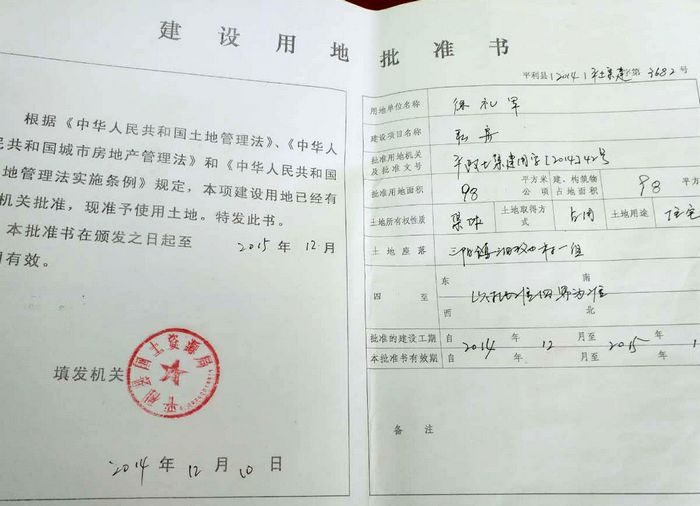 建设用地批准书
根据《中华人民共和国土地管理法》、《中华人
民共和国城市房地产管理法》和《中华人民共和国
地管理法实施条例》规定，本项建设用地已经有
机关批准，现准予使用土地。特发此书。
本批准书在颁发之日起至 2015 年 12 月
有效。
平利县国土资源局
填发机关
2014 年 12 月 10 日
平利县(2014)平土集建字第 3682 号
用地单位名称 徐礼军
建设项目名称 私房
批准用地机关及批准文号 平政土集建用字[2014]42号
批准用地面积 98 平方米 公顷 建、构筑物占地面积 98 平方
土地所有权性质 集体 土地取得方式 占用 土地用途 住宅
土地座落 三阳镇 村一组
四至 东 南 西 北 以 为准
批准的建设工期 自 2014 年 12 月至 2015 年 1
本批准书有效期 自 年 月至 年
备注